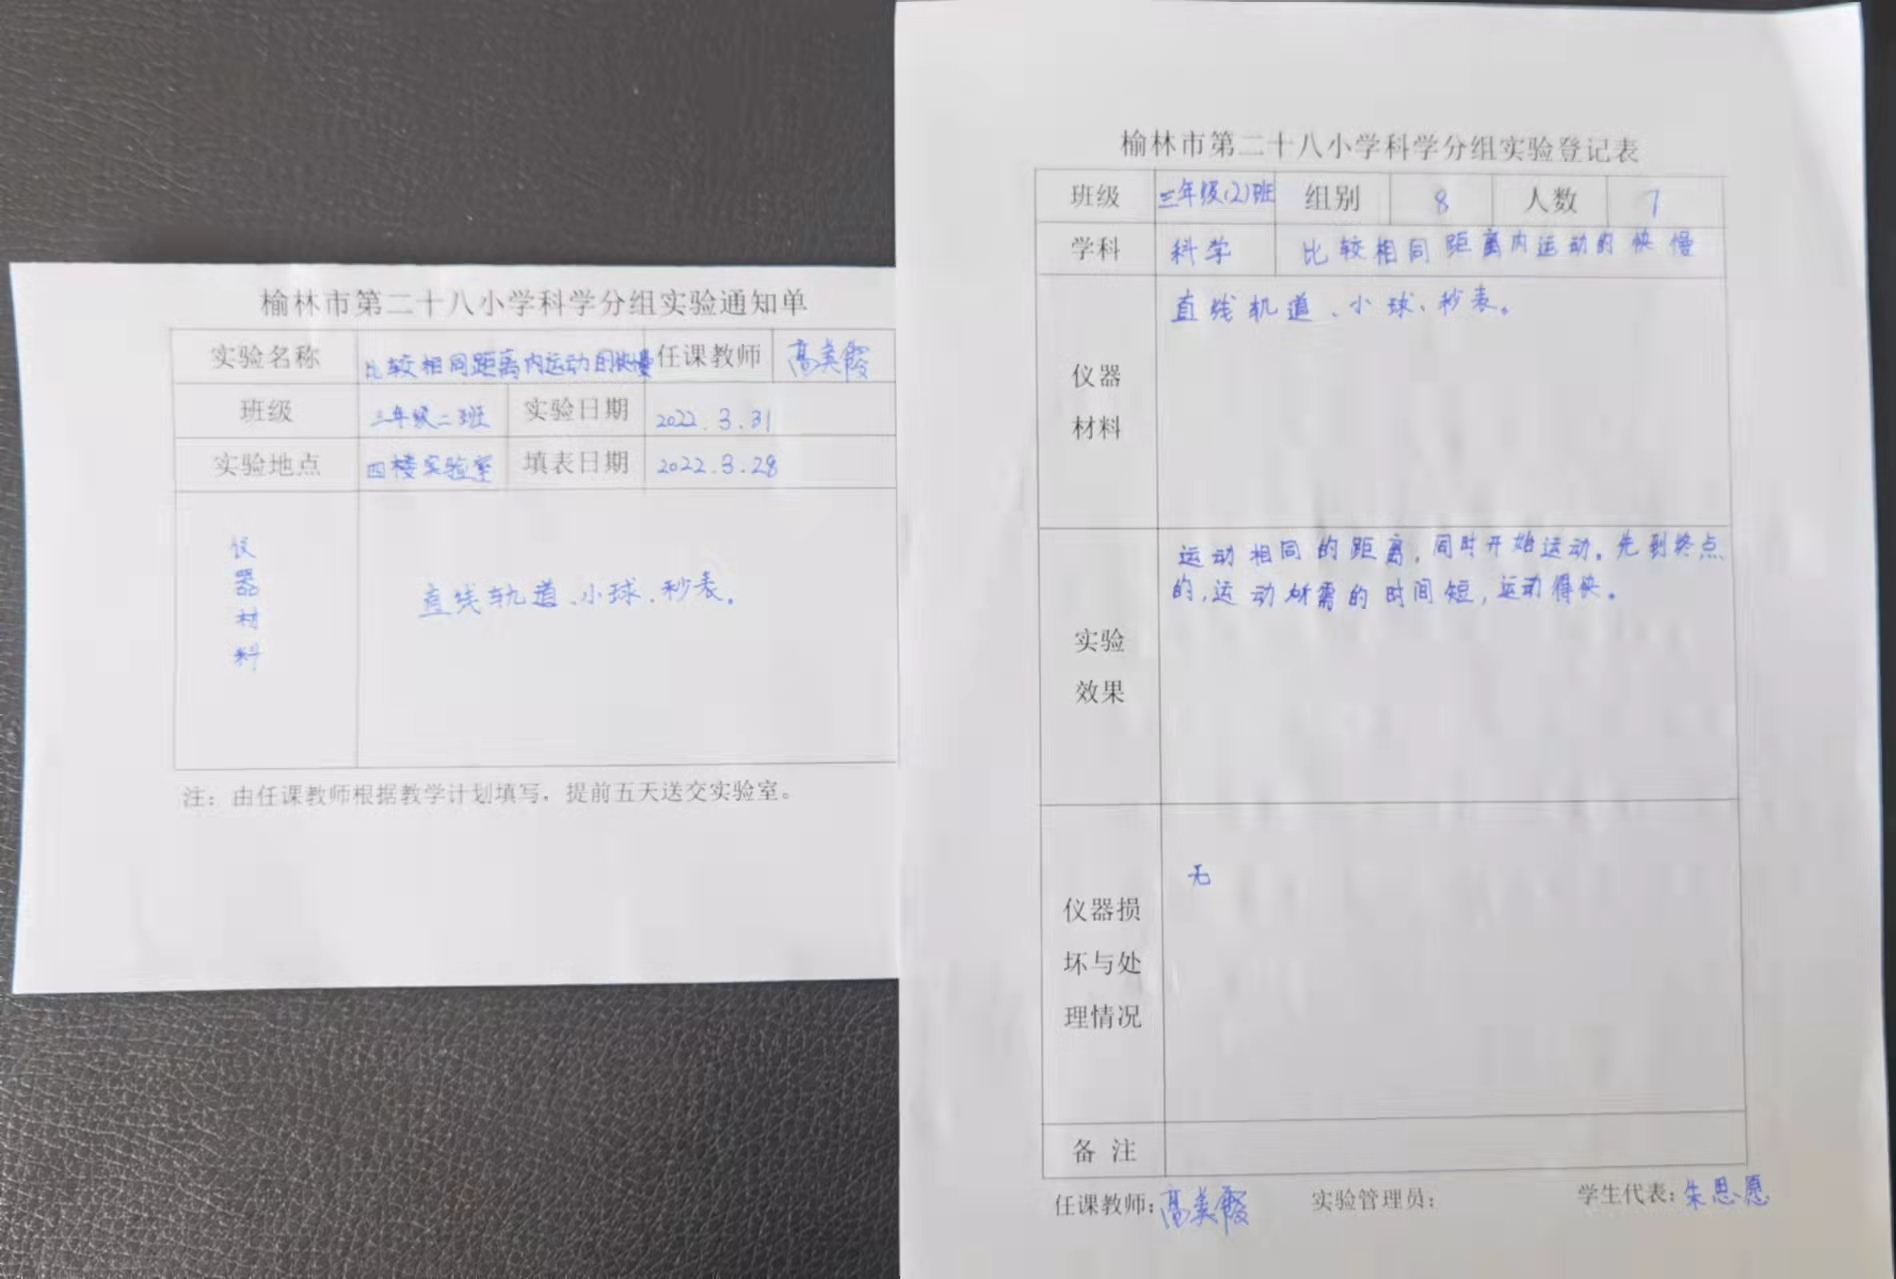 榆林市第二十八小学科学分组实验通知单
实验名称 比较相同距离内运动的快慢 任课教师 高美霞
班级 三年级二班 实验日期 2022.3.31
实验地点 四楼实验室 填表日期 2022.3.28
仪器材料 直线轨道、小球、秒表。
注：由任课教师根据教学计划填写，提前五天送交实验室。
榆林市第二十八小学科学分组实验登记表
班级 三年级(2)班 组别 8 人数 7
学科 科学 比较相同距离内运动的快慢
直线轨道、小球、秒表。
仪器
材料
运动相同的距离，同时开始运动。先到终点
的，运动所需的时间短，运动得快。
实验
效果
无
仪器损
坏与处
理情况
备 注
任课教师：高美霞 实验管理员： 学生代表：朱思愿